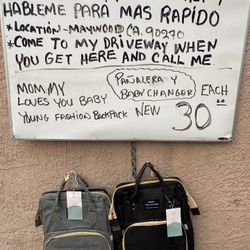 HABLEME PARA MAS RAPIDO
*LOCATION - MAYWOOD CA. 90270
*COME TO MY DRIVEWAY WHEN
YOU GET HERE AND CALL ME.
PAÑALERA Y
BABY CHANGER EACH
MOMMY
LOVES YOU BABY
NEW 30
YOUNG FASHION BACKPACK